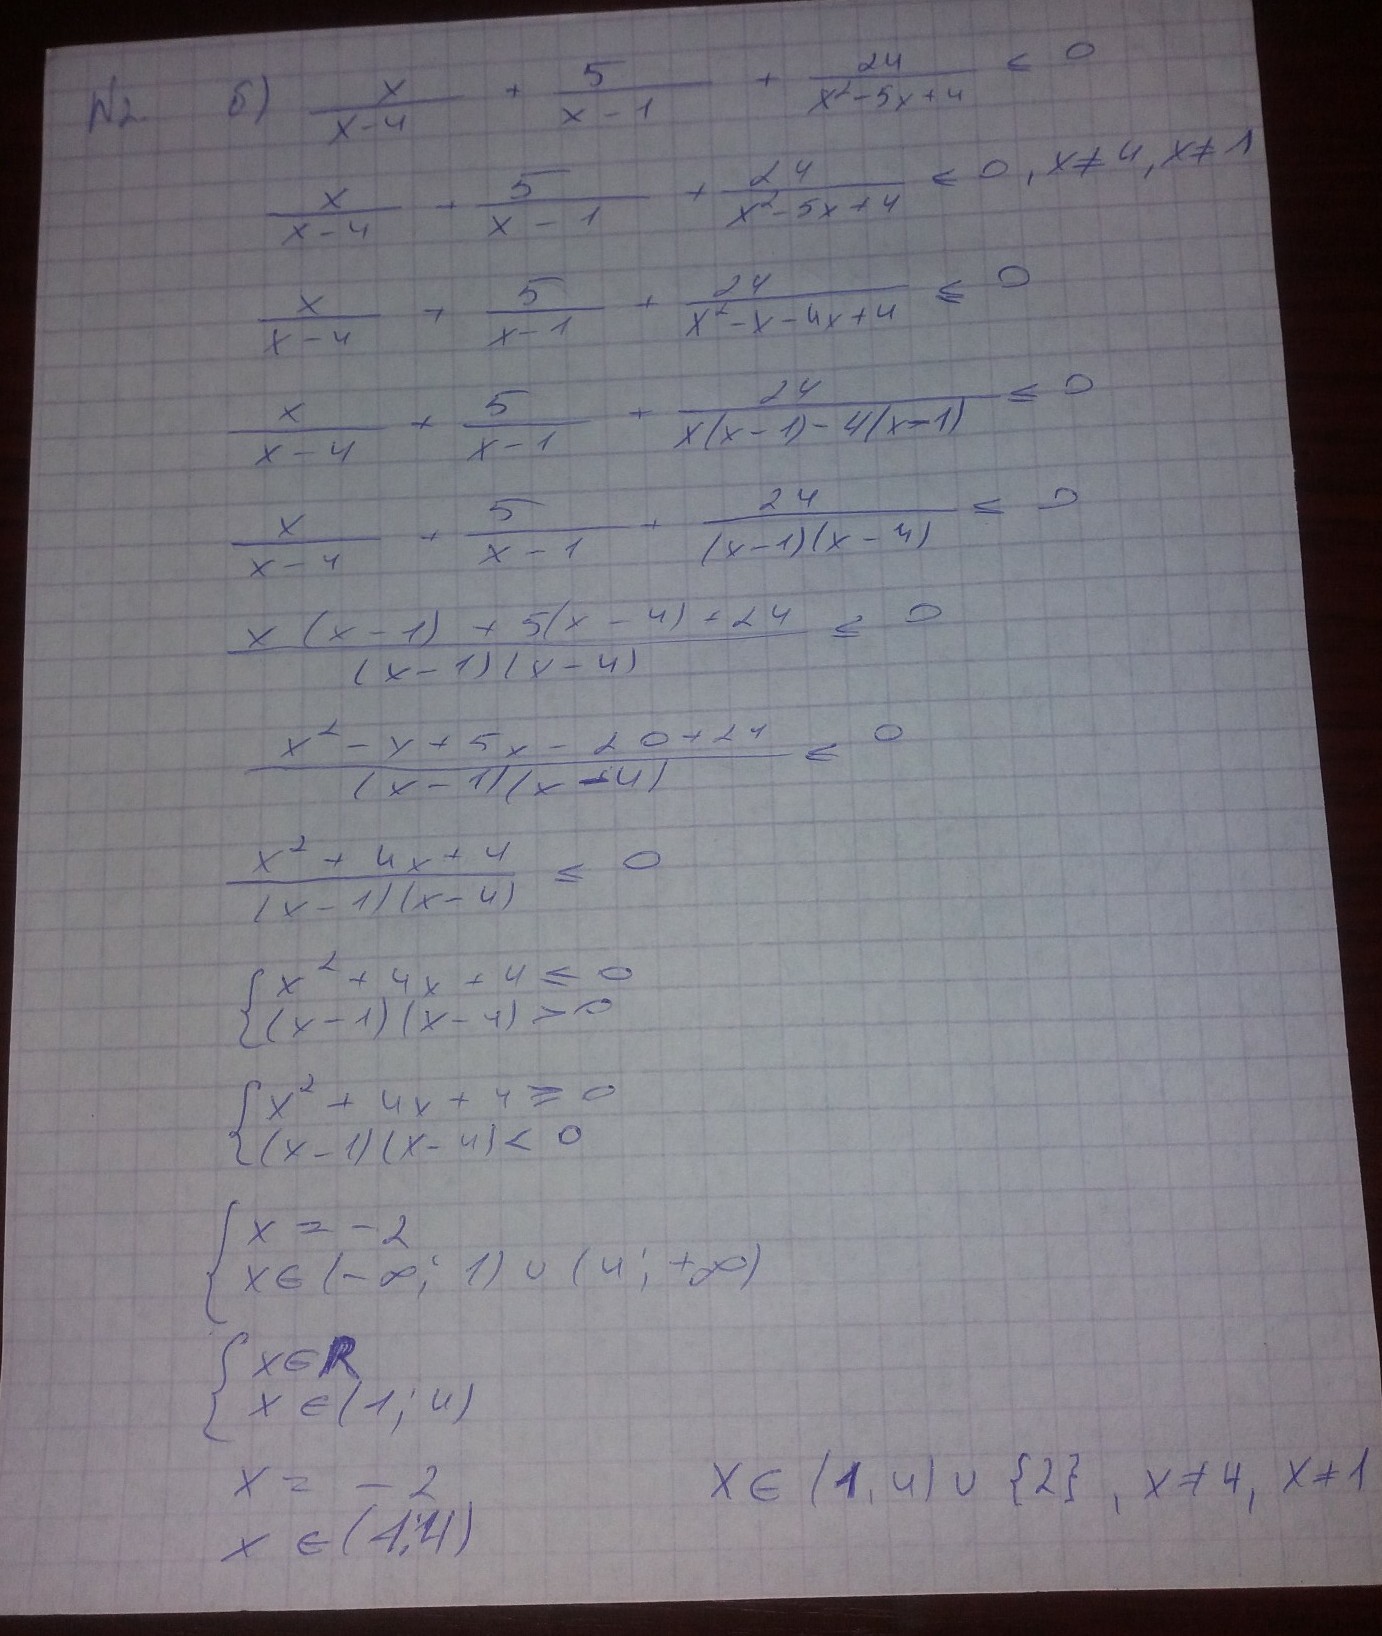 N2 б) x/(x-4) + 5/(x-1) + 24/(x²-5x+4) ≤ 0
x/(x-4) + 5/(x-1) + 24/(x²-5x+4) ≤ 0, x≠4, x≠1
x/(x-4) + 5/(x-1) + 24/(x²-x-4x+4) ≤ 0
x/(x-4) + 5/(x-1) + 24/(x(x-1)-4(x-1)) ≤ 0
x/(x-4) + 5/(x-1) + 24/((x-1)(x-4)) ≤ 0
(x(x-1)+5(x-4)+24)/((x-1)(x-4)) ≤ 0
(x²-x+5x-20+24)/((x-1)(x-4)) ≤ 0
(x²+4x+4)/((x-1)(x-4)) ≤ 0
{ x²+4x+4 ≤ 0
(x-1)(x-4) > 0
{ x²+4x+4 ≥ 0
(x-1)(x-4) < 0
{ x = -2
x∈(-∞; 1)∪(4; +∞)
{ x∈R
x∈(1; 4)
x = -2
x∈(1;4)
x∈(1,4)∪{2}, x≠4, x≠1